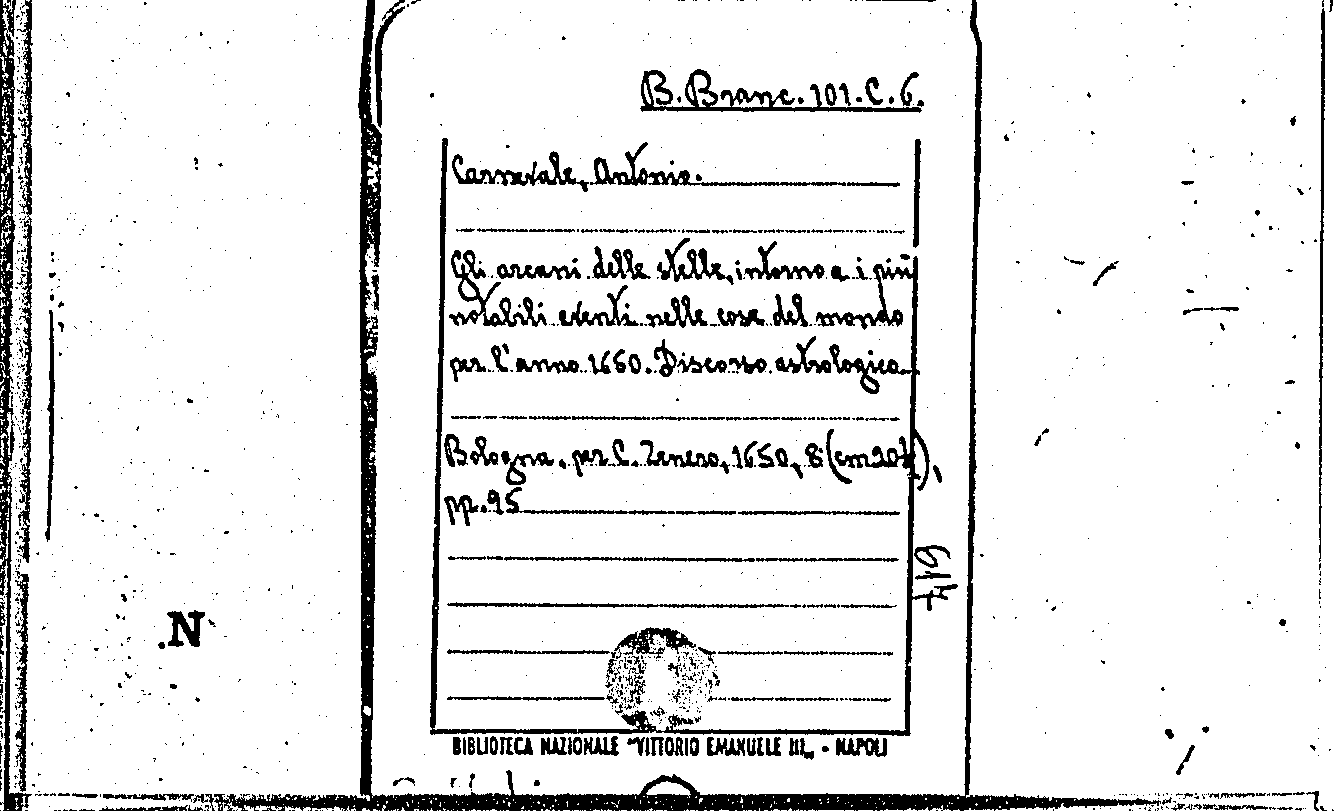 B. Branc. 101. C. 6.
Carnevale, Antonio.
Gli arcani delle stelle, intorno a i più
notabili eventi nelle cose del mondo
per l'anno 1650. Discorso astrologico.
Bologna, per C. Zenero, 1650, 8°(cm 20½),
pp. 95
N.
BIBLIOTECA NAZIONALE "VITTORIO EMANUELE III„ - NAPOLI